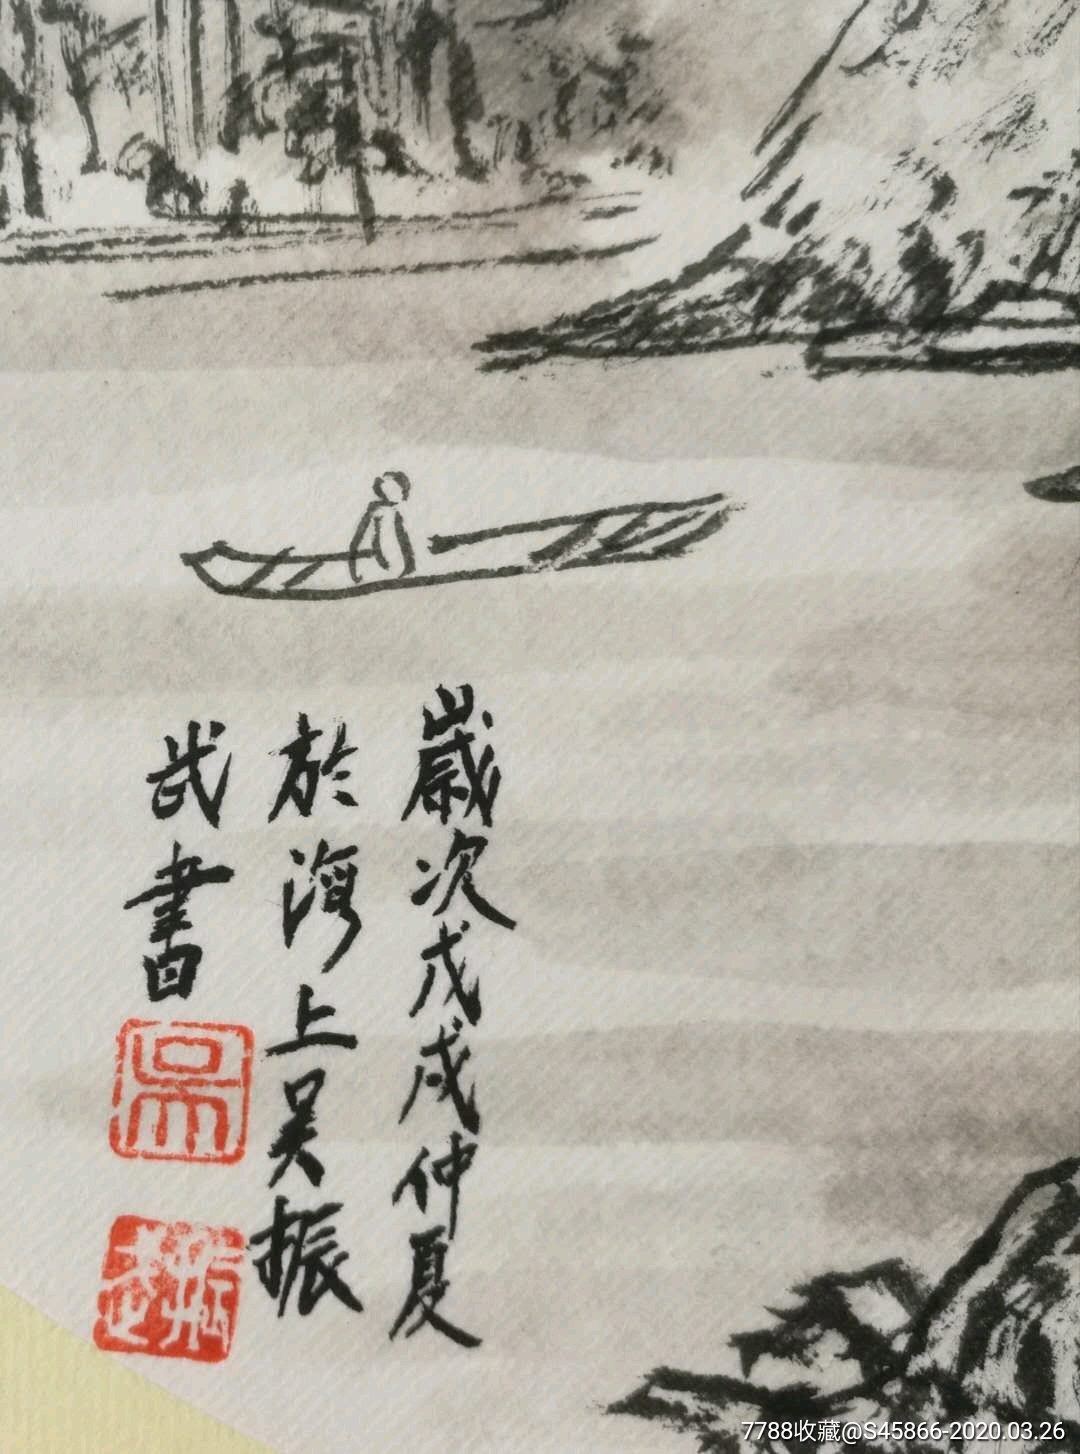 歲次戊戌仲夏
於海上吴振
武書
吴
振武
7788收藏@S45866-2020.03.26